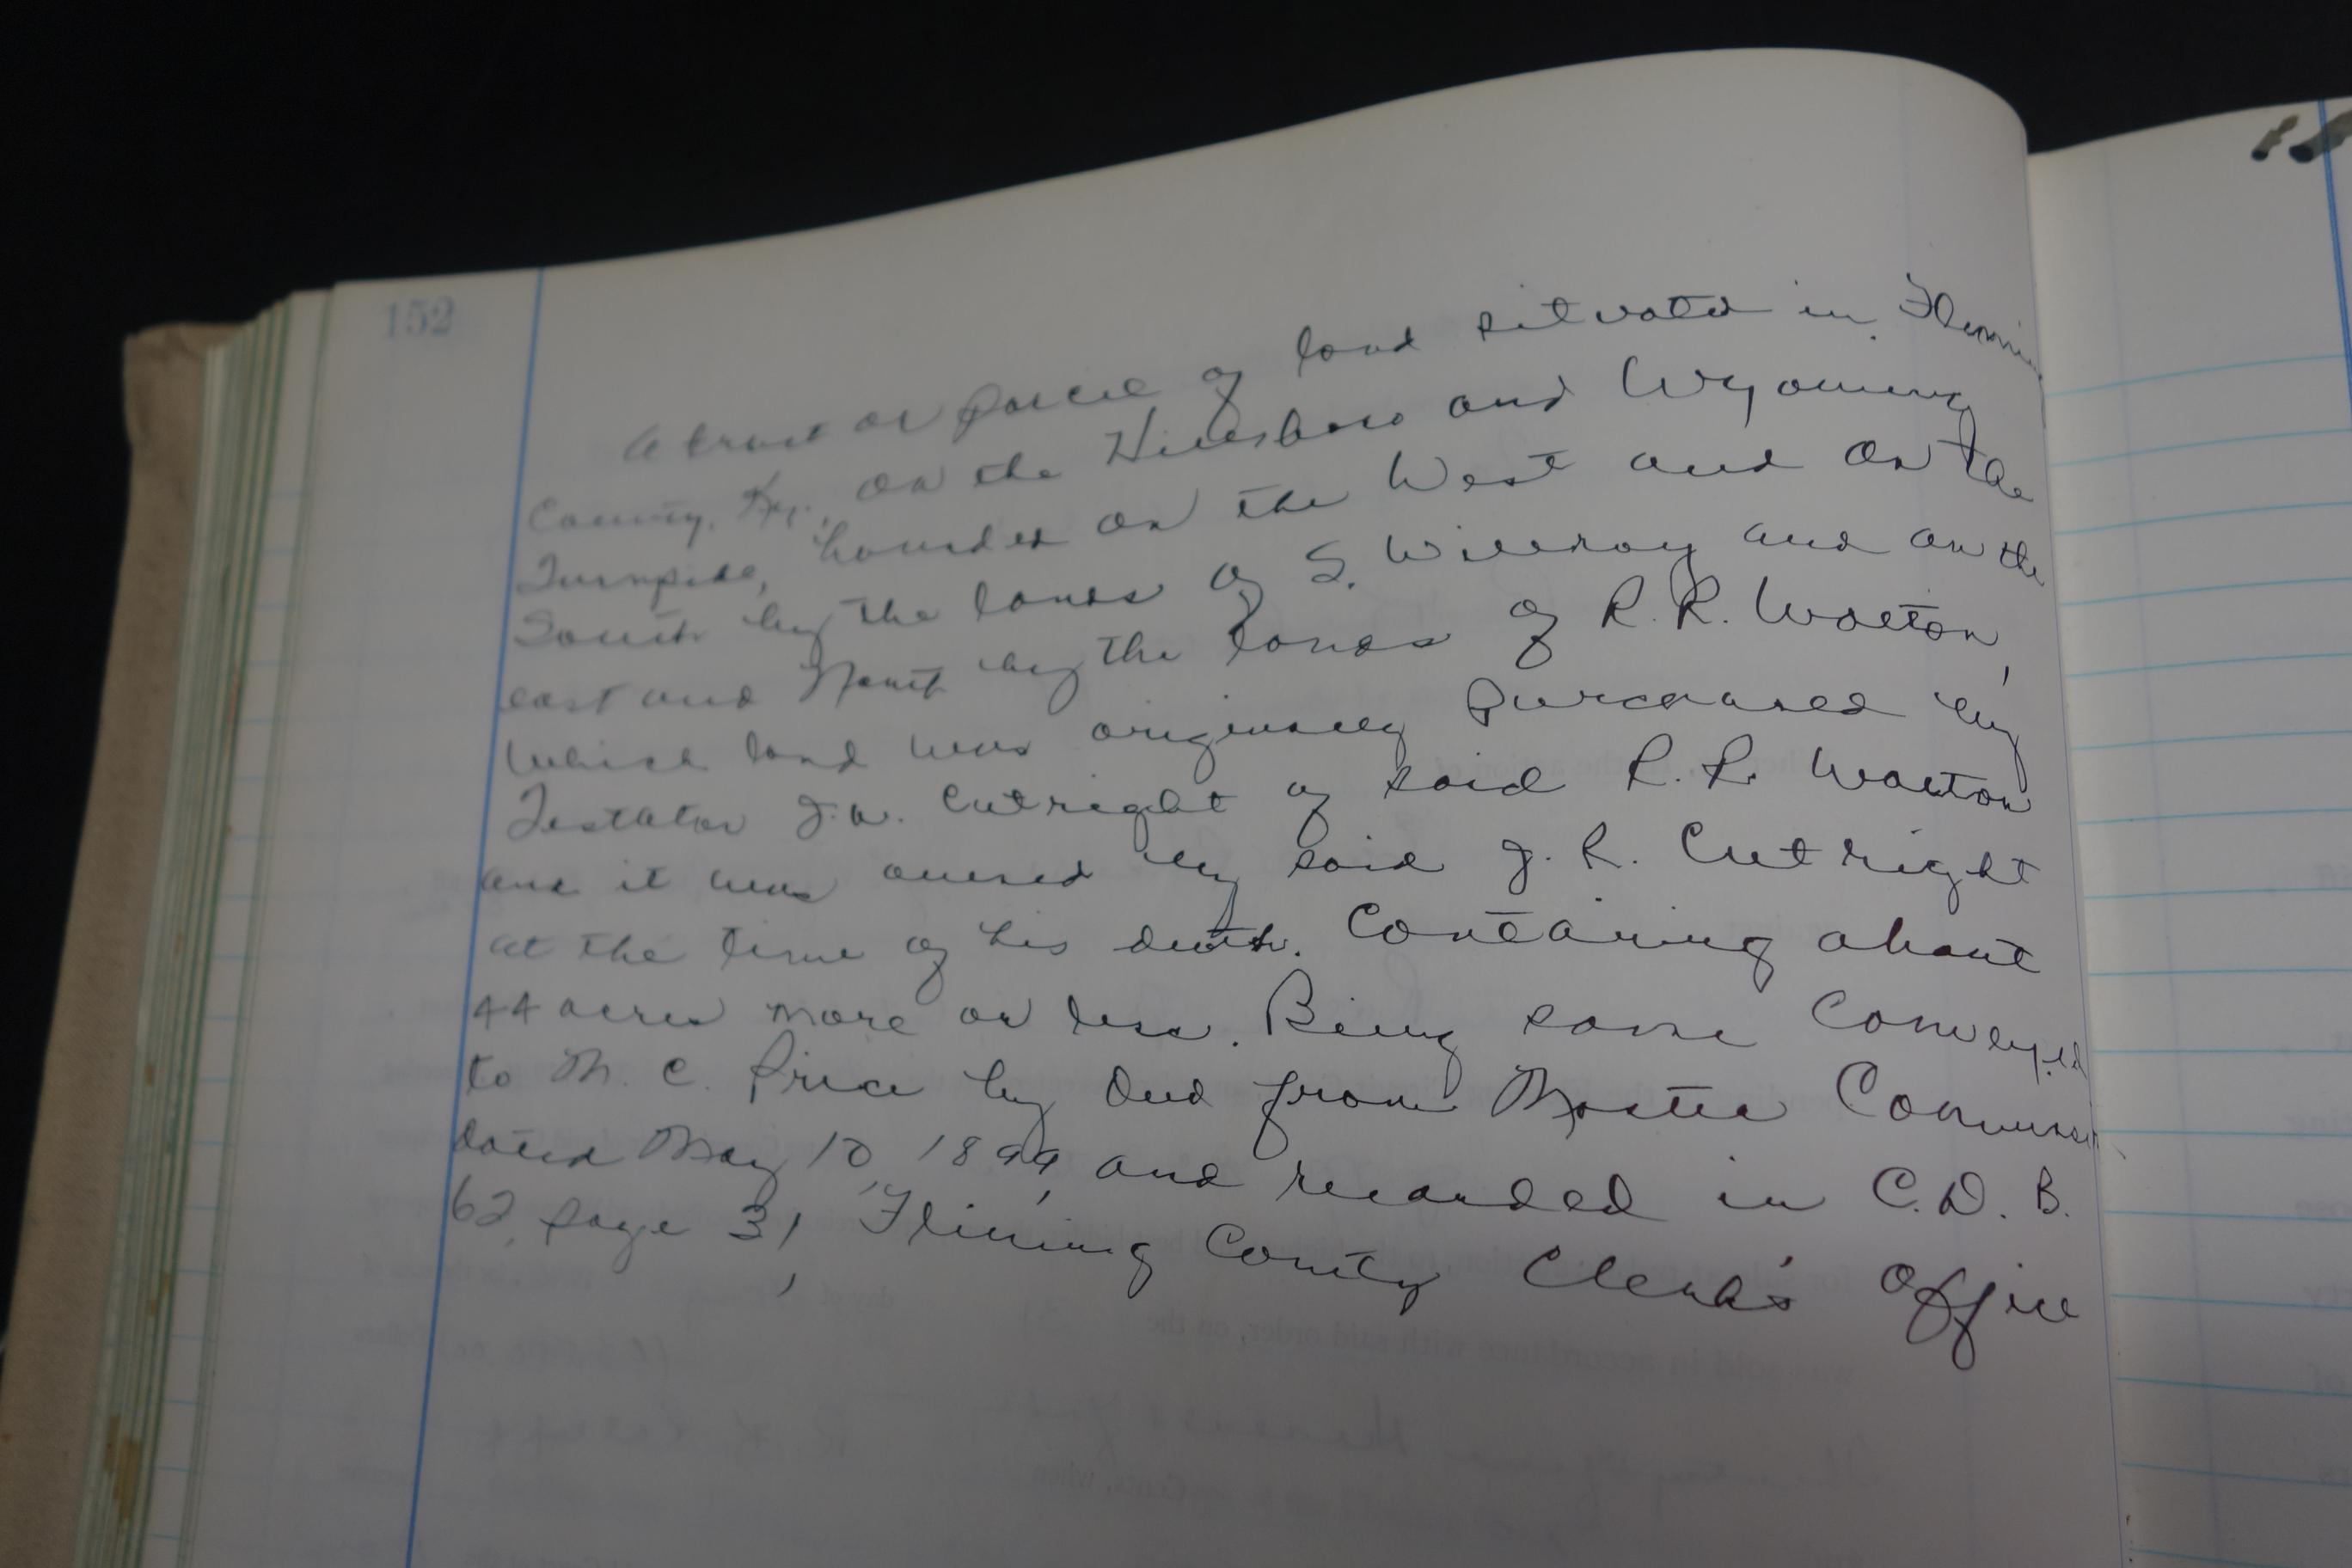 152
A tract or parcel of land situated in Fleming
County, Ky., on the Hillsboro and Wyoming
Turnpike, bounded on the West and on the
South by the lands of S. Willroy and on the
east and North by the lands of R. R. Walton,
which land was originally purchased by
Testator J. W. Cutright of said R. R. Walton
and it was owned by said J. R. Cutright
at the time of his death. Containing about
44 acres more or less. Being same Conveyed
to M. C. Price by Deed from Master
dated May 10, 1899, and recorded in C. D. B.
62, page 31, Fleming County Clerk's Office